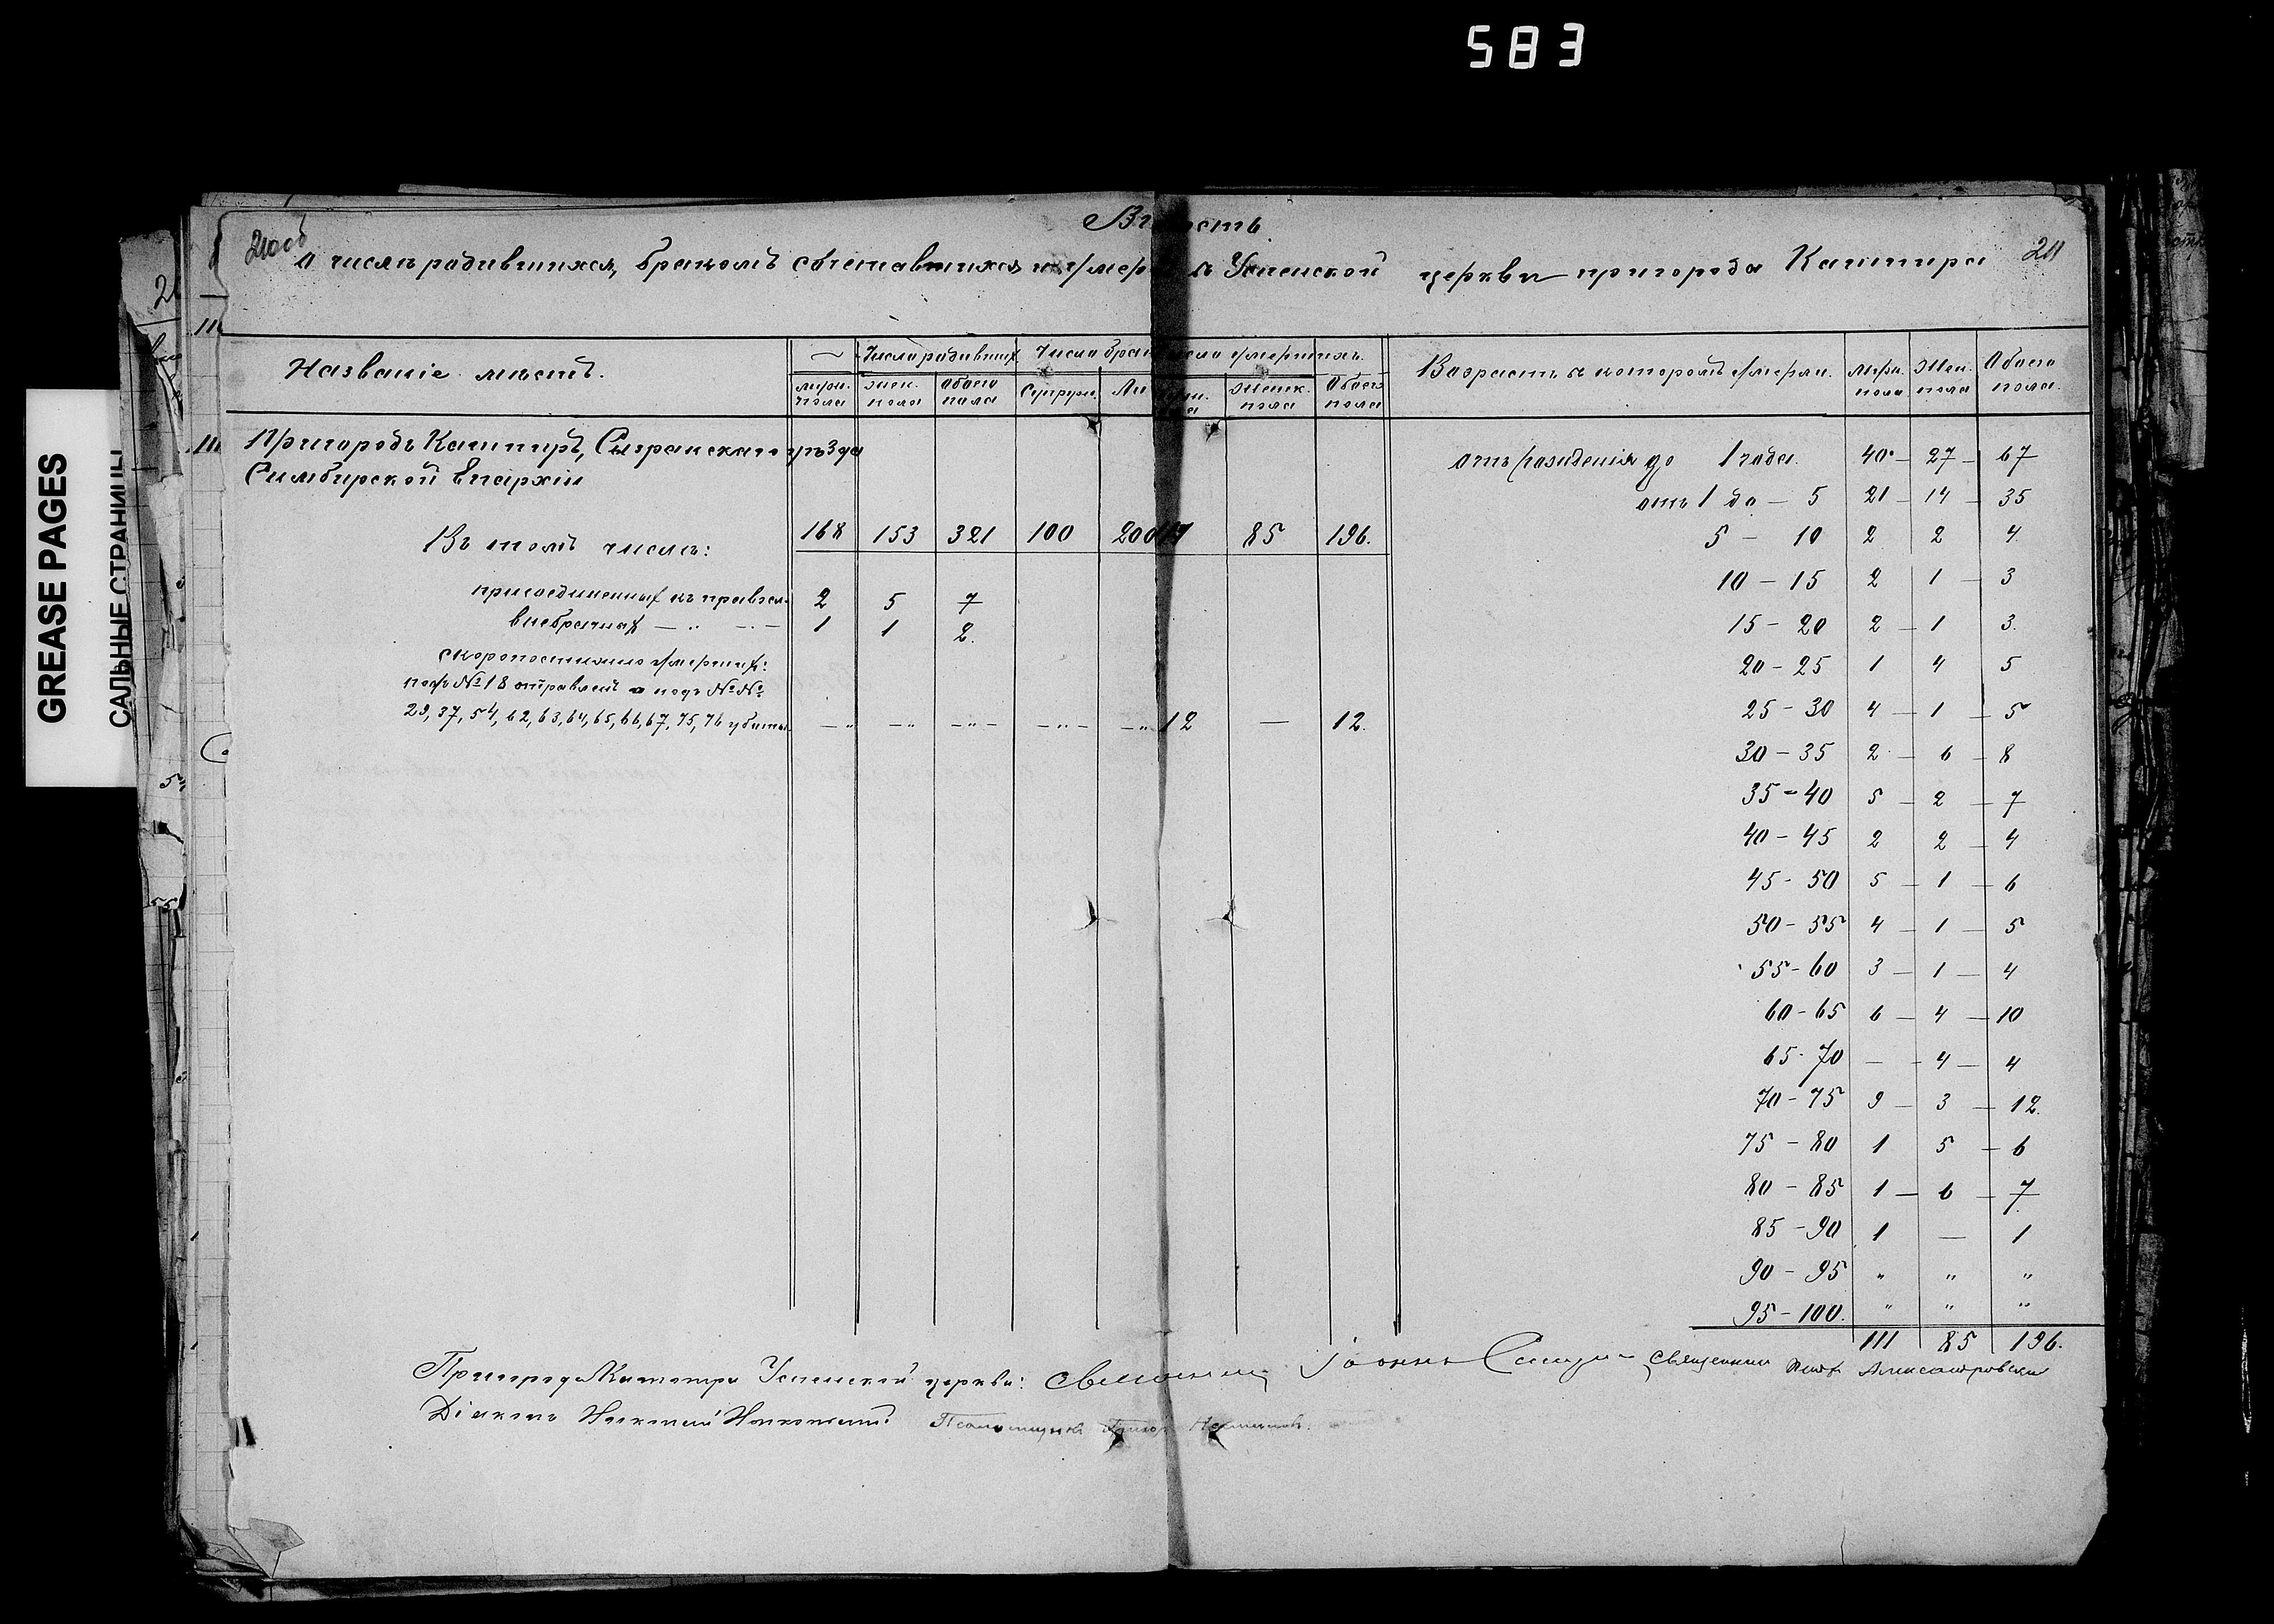 583
GREASE PAGES
САЛЬНЫЕ СТРАНИЦЫ
210об
Вѣдомость
211
о числѣ родившихся, бракомъ сочетавшихся и умерш въ Успенской церкви пригорода Кашпира
Названіе мѣстъ.
Число родивших.
Число брак
число умершихъ.
Возрастъ въ которомъ умерли.
Муж. пола
Жен. пола
Обоего пола.
мужи. пола
жен. пола
обоего пола
Супруж.
Ли
Женск. пола
Обоего пола
Пригородъ Кашпиръ, Сызранскаго уѣзда
Симбирской Епархіи
Въ томъ числѣ: 168 153 321 100 200 111 85 196.
присоединенных къ правосл. 2 5 7
внебрачных — " — " — 1 1 2.
скоропостижно умерших:
подъ № 18 отравлен и подъ №№
29, 37, 54, 62, 63, 64, 65, 66, 67, 75, 76 убиты — " — " — " — — " — — " 12 — 12.
отъ рожденія до 1 года. 40 — 27 — 67
отъ 1 до — 5 21 — 14 — 35
5 — 10 2 2 4
10 — 15 2 1 — 3
15 — 20 2 — 1 3.
20 — 25 1 4 5
25 — 30 4 — 1 — 5
30 — 35 2 — 6 — 8
35 — 40 5 — 2 — 7
40 — 45 2 2 — 4
45 - 50 5 — 1 — 6
50 — 55 4 — 1 — 5
55 - 60 3 — 1 — 4
60 - 65 6 — 4 — 10
65 - 70 — 4 — 4
70 — 75 9 — 3 — 12.
75 — 80 1 5 — 6
80 — 85 1 — 6 — 7
85 — 90 1 — 1
90 — 95 " " "
95 — 100. " " "
111 85 196.
Пригорода Кашпира Успенской церкви: Священникъ Іоаннъ Священник Александровскій
Діаконъ Николай
Псаломщикъ